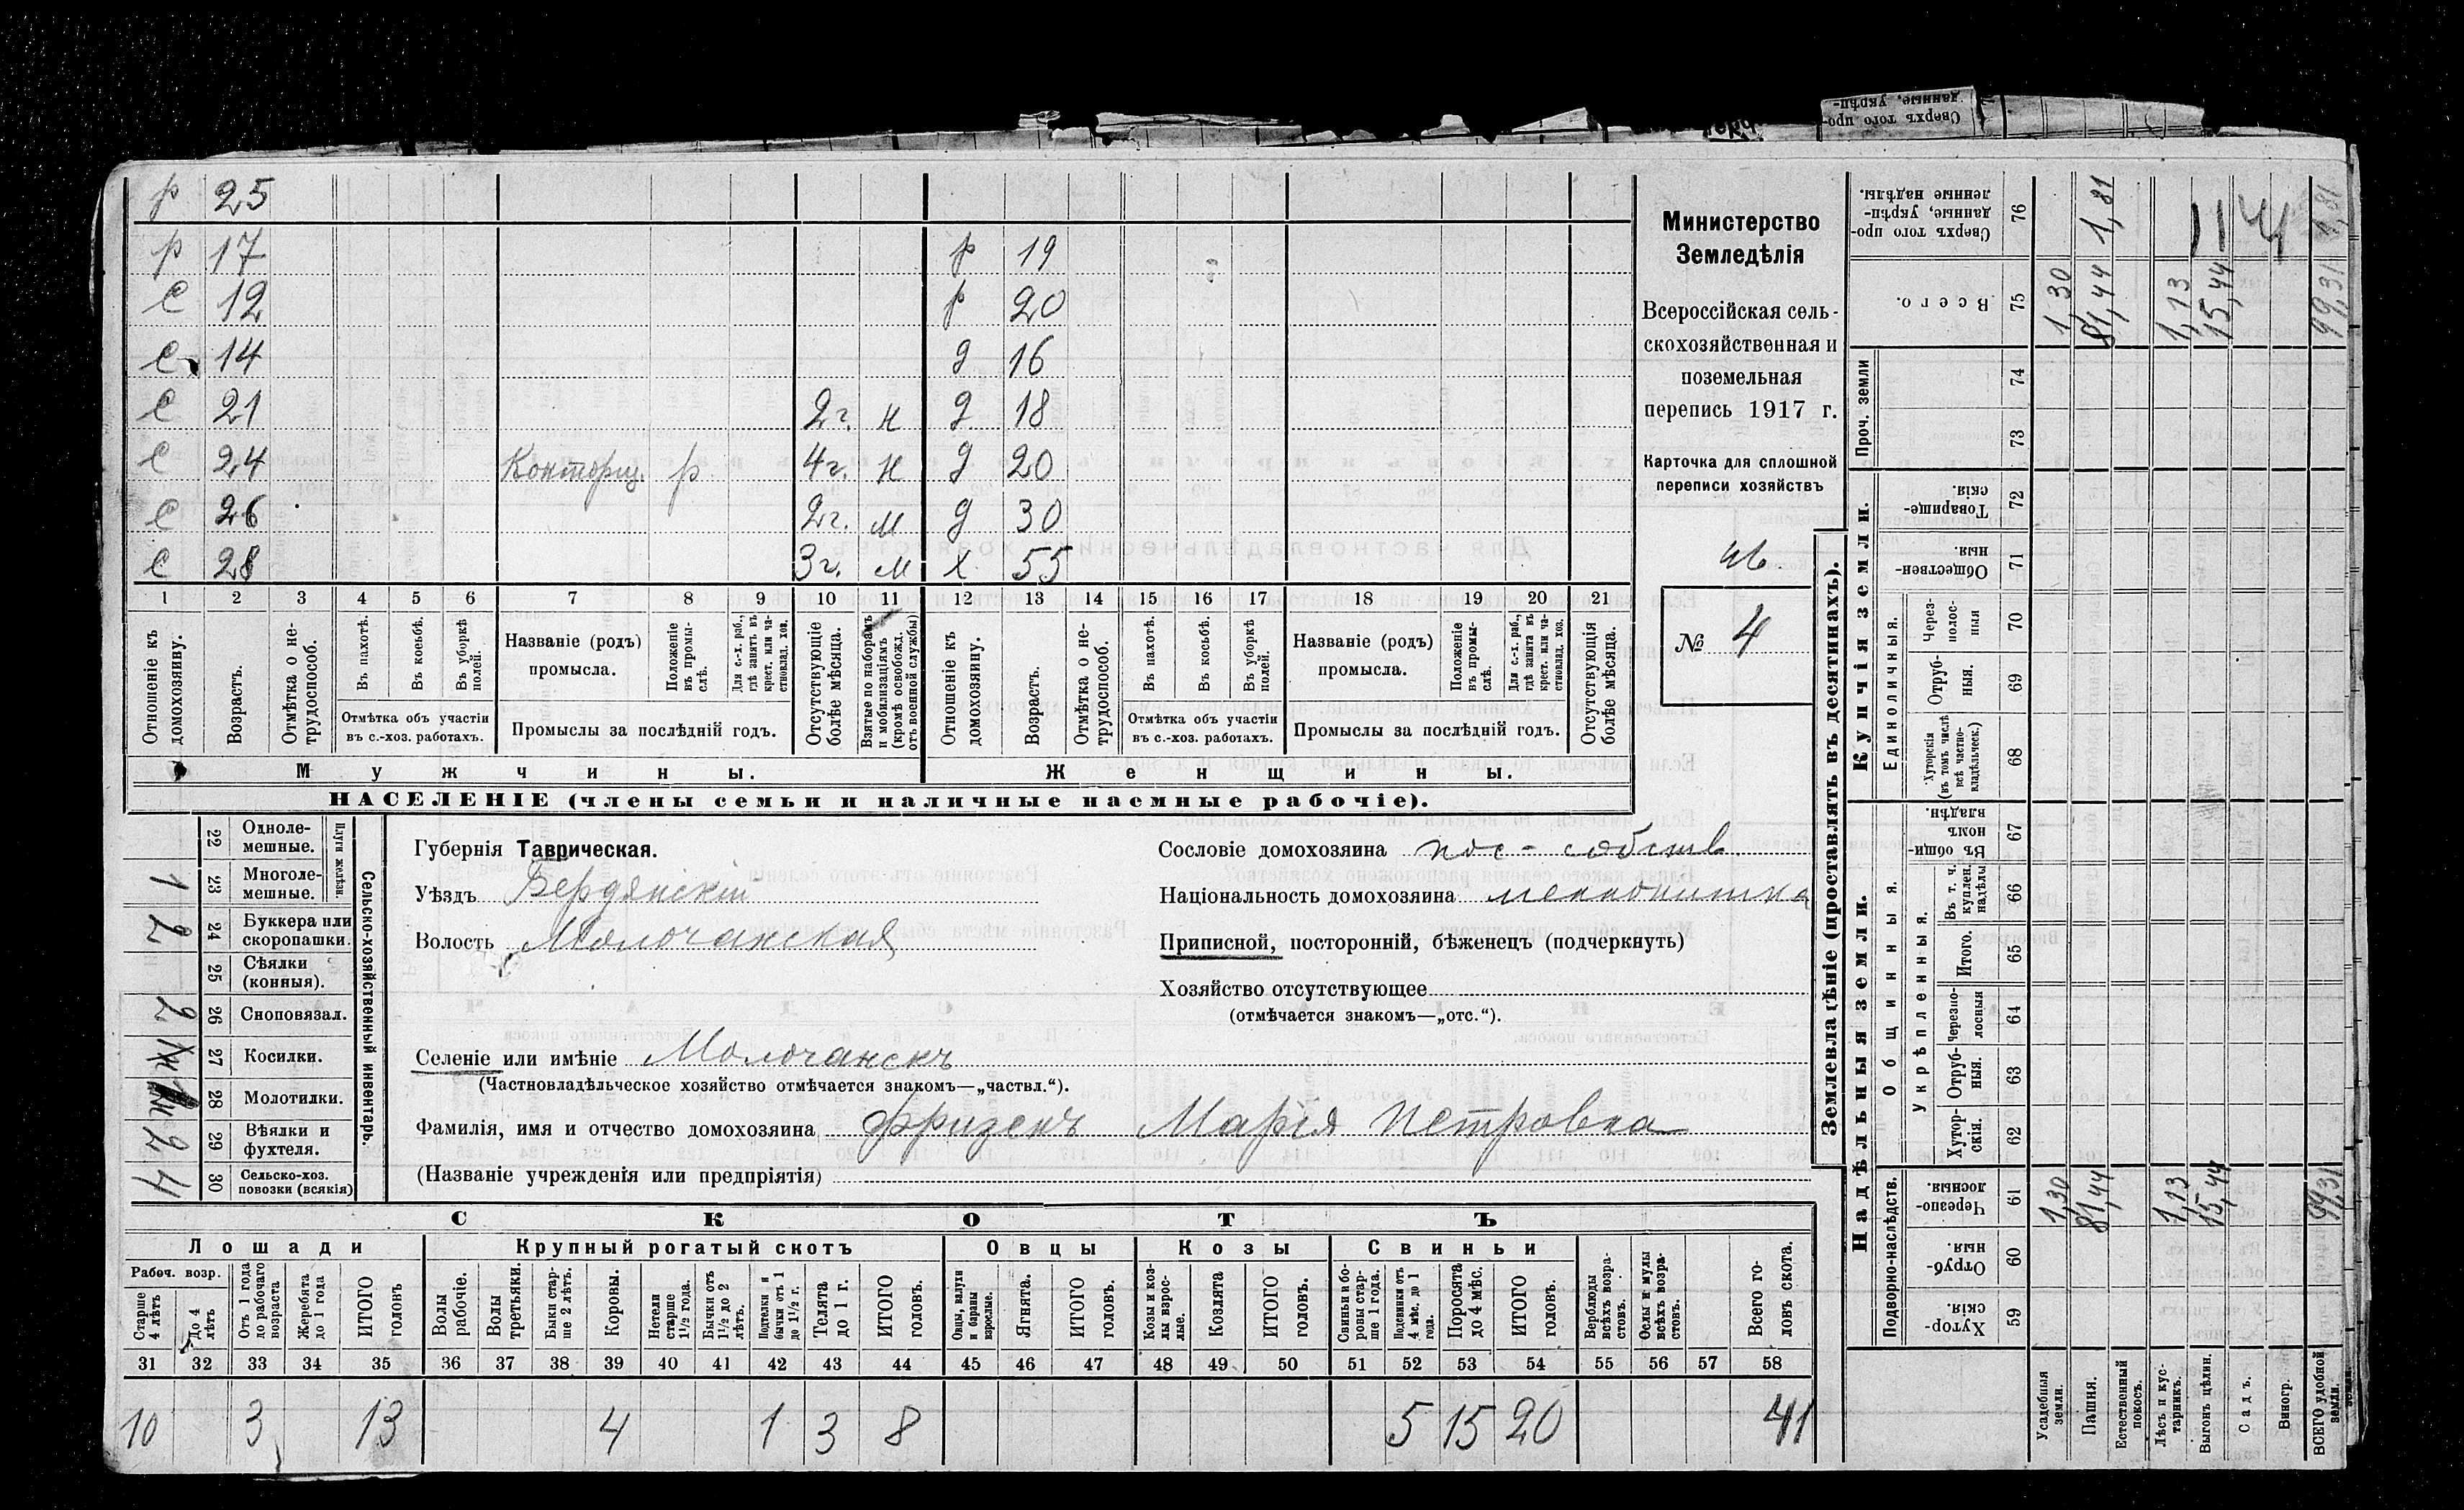 р 25
р 17 р 19
С 12 р 20
С 14 д 16
С 21 2г. н д 18
С 24 Конторщ. р 4г. н д 20
С 26 2г. м д 30
С 28 3г. м х 55
1 2 3 4 5 6 7 8 9 10 11 12 13 14 15 16 17 18 19 20 21
Отношеніе къ домохозяину.
Возрастъ.
Отмѣтка о нетрудоспособ.
Въ пахотѣ.
Въ косьбѣ.
Въ уборкѣ полей.
Отмѣтка объ участіи въ с.-хоз. работахъ.
Названіе (родъ) промысла.
Положеніе въ промыслѣ.
Для с.-х. раб., гдѣ занятъ въ крест. или частновлад. хоз.
Промыслы за послѣдній годъ.
Отсутствующіе болѣе мѣсяца.
Взятые по наборамъ и мобилизаціямъ (кромѣ освобожд. отъ военной службы)
Отношеніе къ домохозяину.
Возрастъ.
Отмѣтка о нетрудоспособ.
Въ пахотѣ.
Въ косьбѣ.
Въ уборкѣ полей.
Отмѣтка объ участіи въ с.-хоз. работахъ.
Названіе (родъ) промысла.
Положеніе въ промыслѣ.
Для с.-х. раб., гдѣ занята въ крест. или частновлад. хоз.
Промыслы за послѣдній годъ.
Отсутствующія болѣе мѣсяца.
Мужчины. Женщины.
НАСЕЛЕНІЕ (члены семьи и наличные наемные рабочіе).
Министерство
Земледѣлія
Всероссійская сель-
скохозяйственная и
поземельная
перепись 1917 г.
Карточка для сплошной
переписи хозяйствъ
№ 4
Губернія Таврическая.
Уѣздъ Бердянскій
Волость Молочанская
Сословіе домохозяина пос-собств.
Національность домохозяина меннонитка
Приписной, посторонній, бѣженец (подчеркнуть)
Хозяйство отсутствующее
(отмѣчается знакомъ—„отс.“).
Селеніе или имѣніе Молочанскъ
(Частновладѣльческое хозяйство отмѣчается знакомъ—„частвл.“).
Фамилія, имя и отчество домохозяина Фризенъ Марія Петровна
(Названіе учрежденія или предпріятія)
Сельско-хозяйственный инвентарь.
Плуги желѣзн.
22 Однолемешные.
23 Многолемешные. 1
24 Буккера или скоропашки. 2
25 Сѣялки (конныя).
26 Сноповязал. 2
27 Косилки.
28 Молотилки.
29 Вѣялки и фухтеля. 2
30 Сельско-хоз. повозки (всякія) 4
СКОТЪ
Лошади Крупный рогатый скотъ Овцы Козы Свиньи
Рабоч. возр.
Старше 4 лѣтъ
До 4 лѣтъ
Отъ 1 года до рабочаго возраста
Жеребята до 1 года
ИТОГО головъ
Волы рабочіе.
Волы третьяки.
Быки старше 2 лѣтъ.
Коровы.
Нетели старше 1½ года.
Бычки отъ 1½ до 2 лѣтъ.
Подтелки и бычки отъ 1 до 1½ г.
Телята до 1 г.
ИТОГО головъ.
Овцы, валухи и бараны взрослые.
Ягнята.
ИТОГО головъ.
Козы и козлы взрослые.
Козлята
ИТОГО головъ.
Свиньи и боровы старше 1 года.
Подсвинки отъ 4 мѣс. до 1 года.
Поросята до 4 мѣс.
ИТОГО головъ.
Верблюды всѣхъ возрастовъ.
Ослы и мулы всѣхъ возрастовъ.
Всего головъ скота.
31 32 33 34 35 36 37 38 39 40 41 42 43 44 45 46 47 48 49 50 51 52 53 54 55 56 57 58
10 3 13 4 1 3 8 5 15 20 41
Землевладѣніе (проставлять въ десятинахъ).
Надѣльныя земли. Купчія земли.
Проч. земли
Подворно-наслѣдств.
Общинныя.
Укрѣпленныя.
Единоличныя.
76 Сверхъ того проданные, укрѣпленные надѣлы. 1,81
75 Всего. 1,30 81,44 1,13 15,44 99,31
74
73
72 Товарищескія.
71 Общественныя.
70 Черезполосныя
69 Отрубныя.
68 Хуторскія (въ томъ числѣ всѣ частновладѣльческ.)
67 Въ общинномъ владѣн.
66 Въ т. ч. куплен. надѣлы
65 Итого.
64 Черезполосныя
63 Отрубныя.
62 Хуторскія.
61 Черезполосныя. 1,30 81,44 1,13 15,44 99,31
60 Отрубныя.
59 Хуторскія.
Усадебныя земли.
Пашня.
Естественный покосъ.
Лѣсъ и кустарникъ.
Выгонъ цѣлин.
Садъ.
Виногр.
ВСЕГО удобной земли.
Сверхъ того проданные, укрѣп-